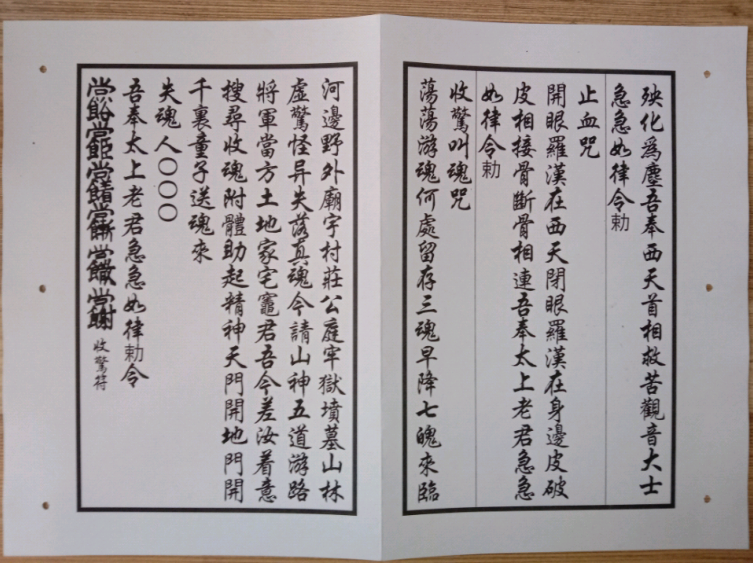 殃化為塵吾奉西天首相救苦觀音大士
急急如律令勅
止血咒
開眼羅漢在西天閉眼羅漢在身邊皮破
皮相接骨斷骨相連吾奉太上老君急急
如律令勅
收驚叫魂咒
蕩蕩游魂何處留存三魂早降七魄來臨
河邊野外廟宇村莊公庭牢獄墳墓山林
虛驚怪异失落真魂今請山神五道游路
將軍當方土地家宅竈君吾今差汝着意
搜尋收魂附體助起精神天門開地門開
千裏童子送魂來
失魂人〇〇〇
吾奉太上老君急急如律勅令
收驚符